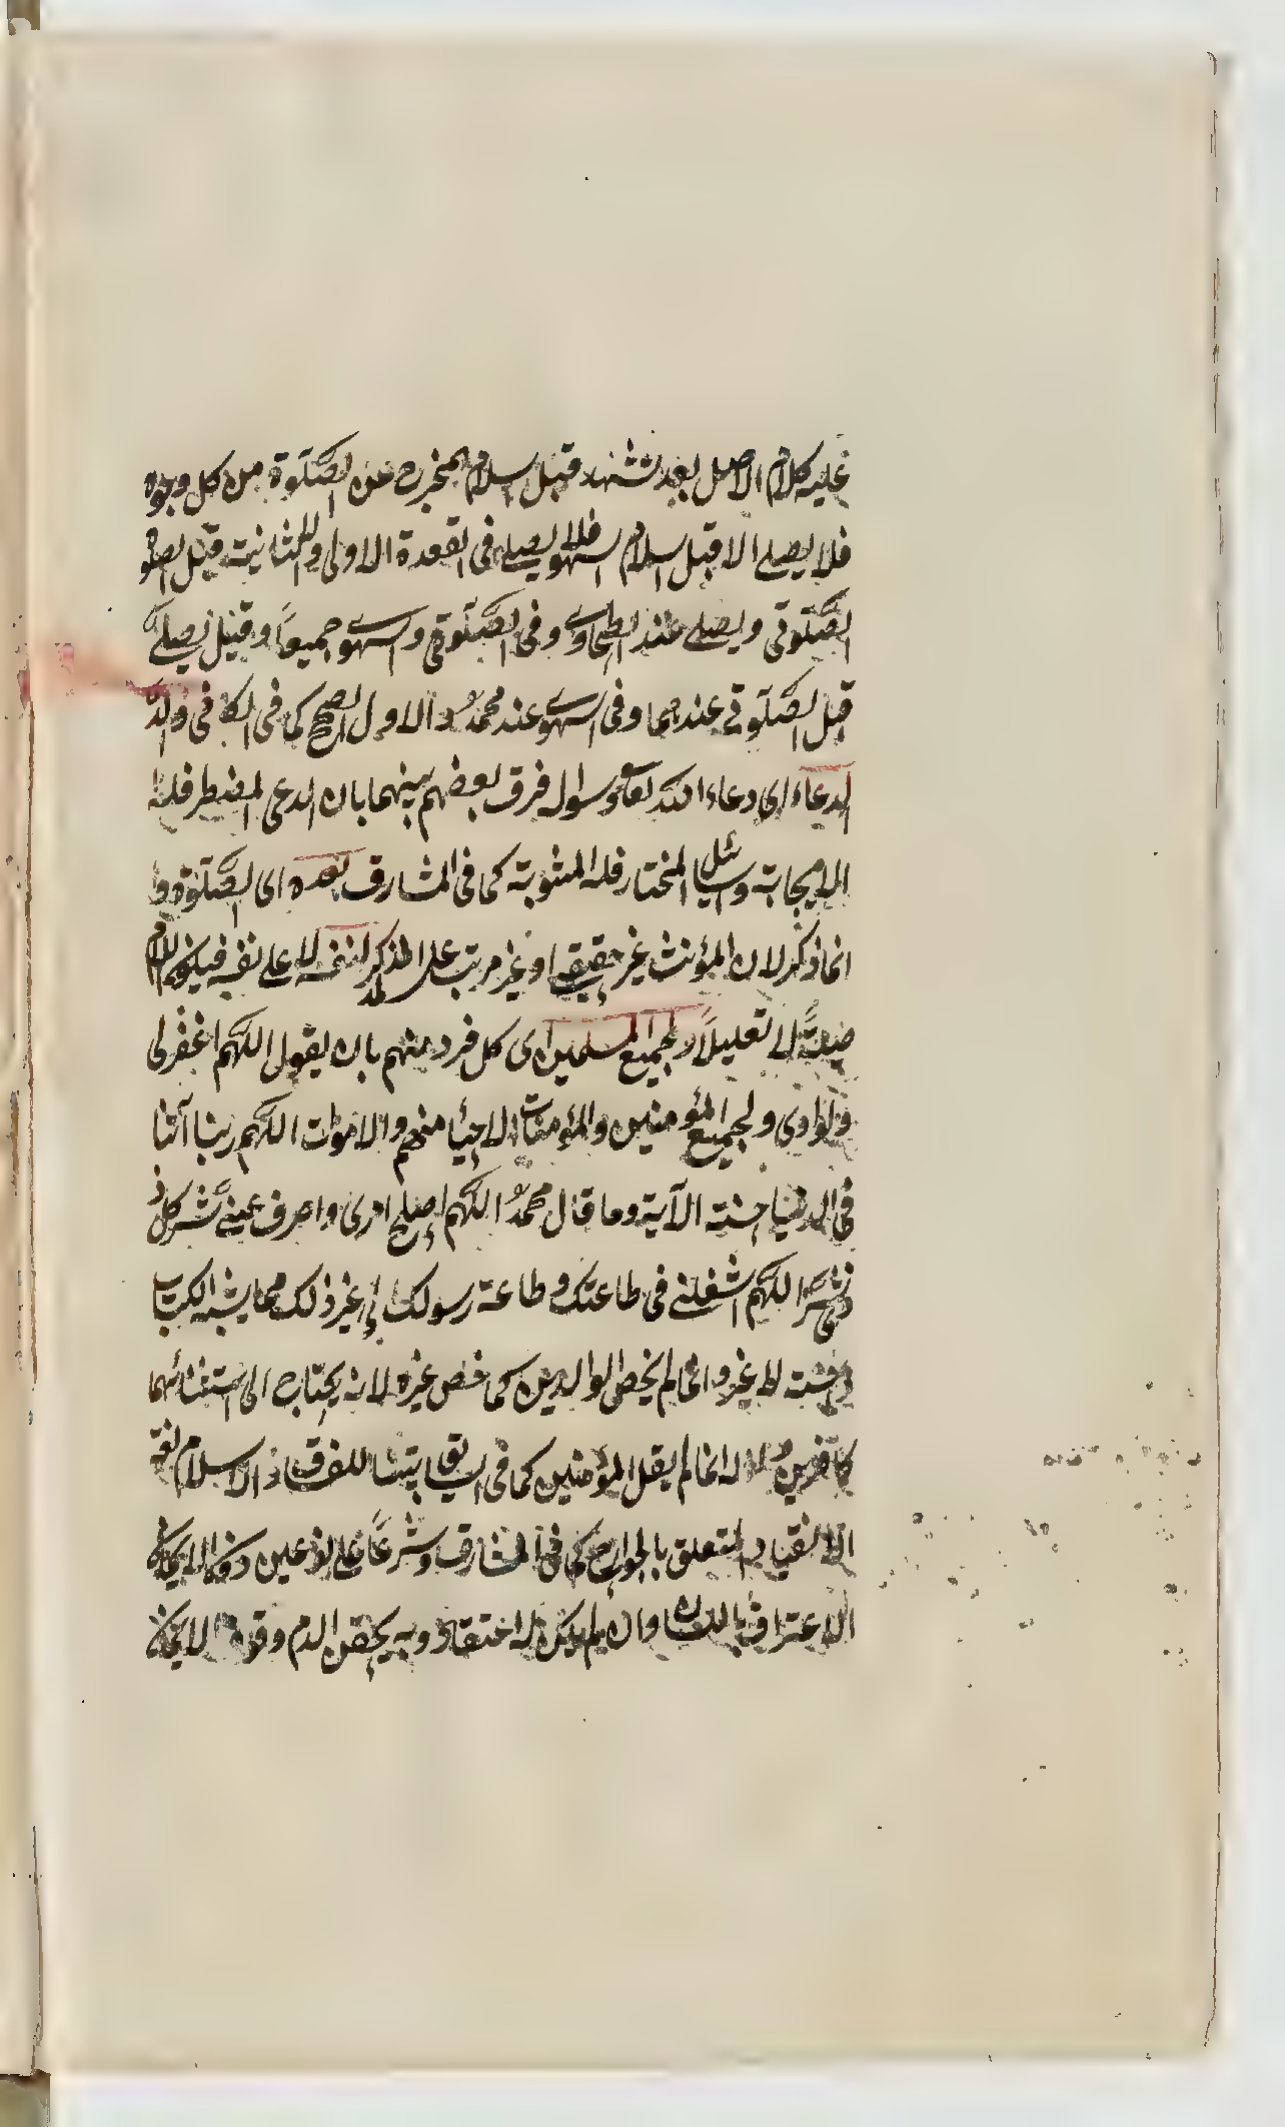 عليه كلام الاصل بعد تشهد قبل سلام يخرج عن الصلوة من كل وجوه
فلا يصلى الا قبل سلام السهو فلا يصلى فى القعدة الاولى والثانية قبل
الصلوتى ويصلى عند الطحاوى وفى الصلوتى والسهو جميعاً وقيل يصلى
قبل الصلوتى عندهما وفى السهو عند محمد والاول الصح كما فى الكافى و
الدعاء اى دعاء الله تعالى وسوال فرق بعضهم بينهما بان الدعى المضطر فله
الاجابة والسائل المختار فله المثوبة كما فى المشارق بعده اى الصلوة و
انما ذكر لان المؤنث غير حقيقى او غير مرتب على المذكر لنفسه لا على نفسه فيكون اللام
صلة لا تعليلاً ولجميع المسلمين اى كل فرد منهم بان يقول اللهم اغفر لى
ولوادى ولجميع المؤمنين والمؤمنات الاحياء منهم والاموات اللهم ربنا آتنا
فى الدنيا حسنة الآية وما قال محمد اللهم اصلح امرى واصرف عنى شر كل ذى
شر اللهم اشغلنى فى طاعتك وطاعة رسولك الى غير ذلك مما يشبه الكتاب
والسنة لا غير وانما لم يخص الوالدين كما خص غيره لانه يحتاج الى استثنائهما
كافرين وانما لم يقل المؤمنين كما فى السابق الاسلام لغة
الانقياد المتعلق بالجوارح كما فى المشارق وشرعاً على نوعين دون الايمان
الاعتراف باللسان وان لم يكن له اعتقاد وبه يحقن الدم وفوق الايمان